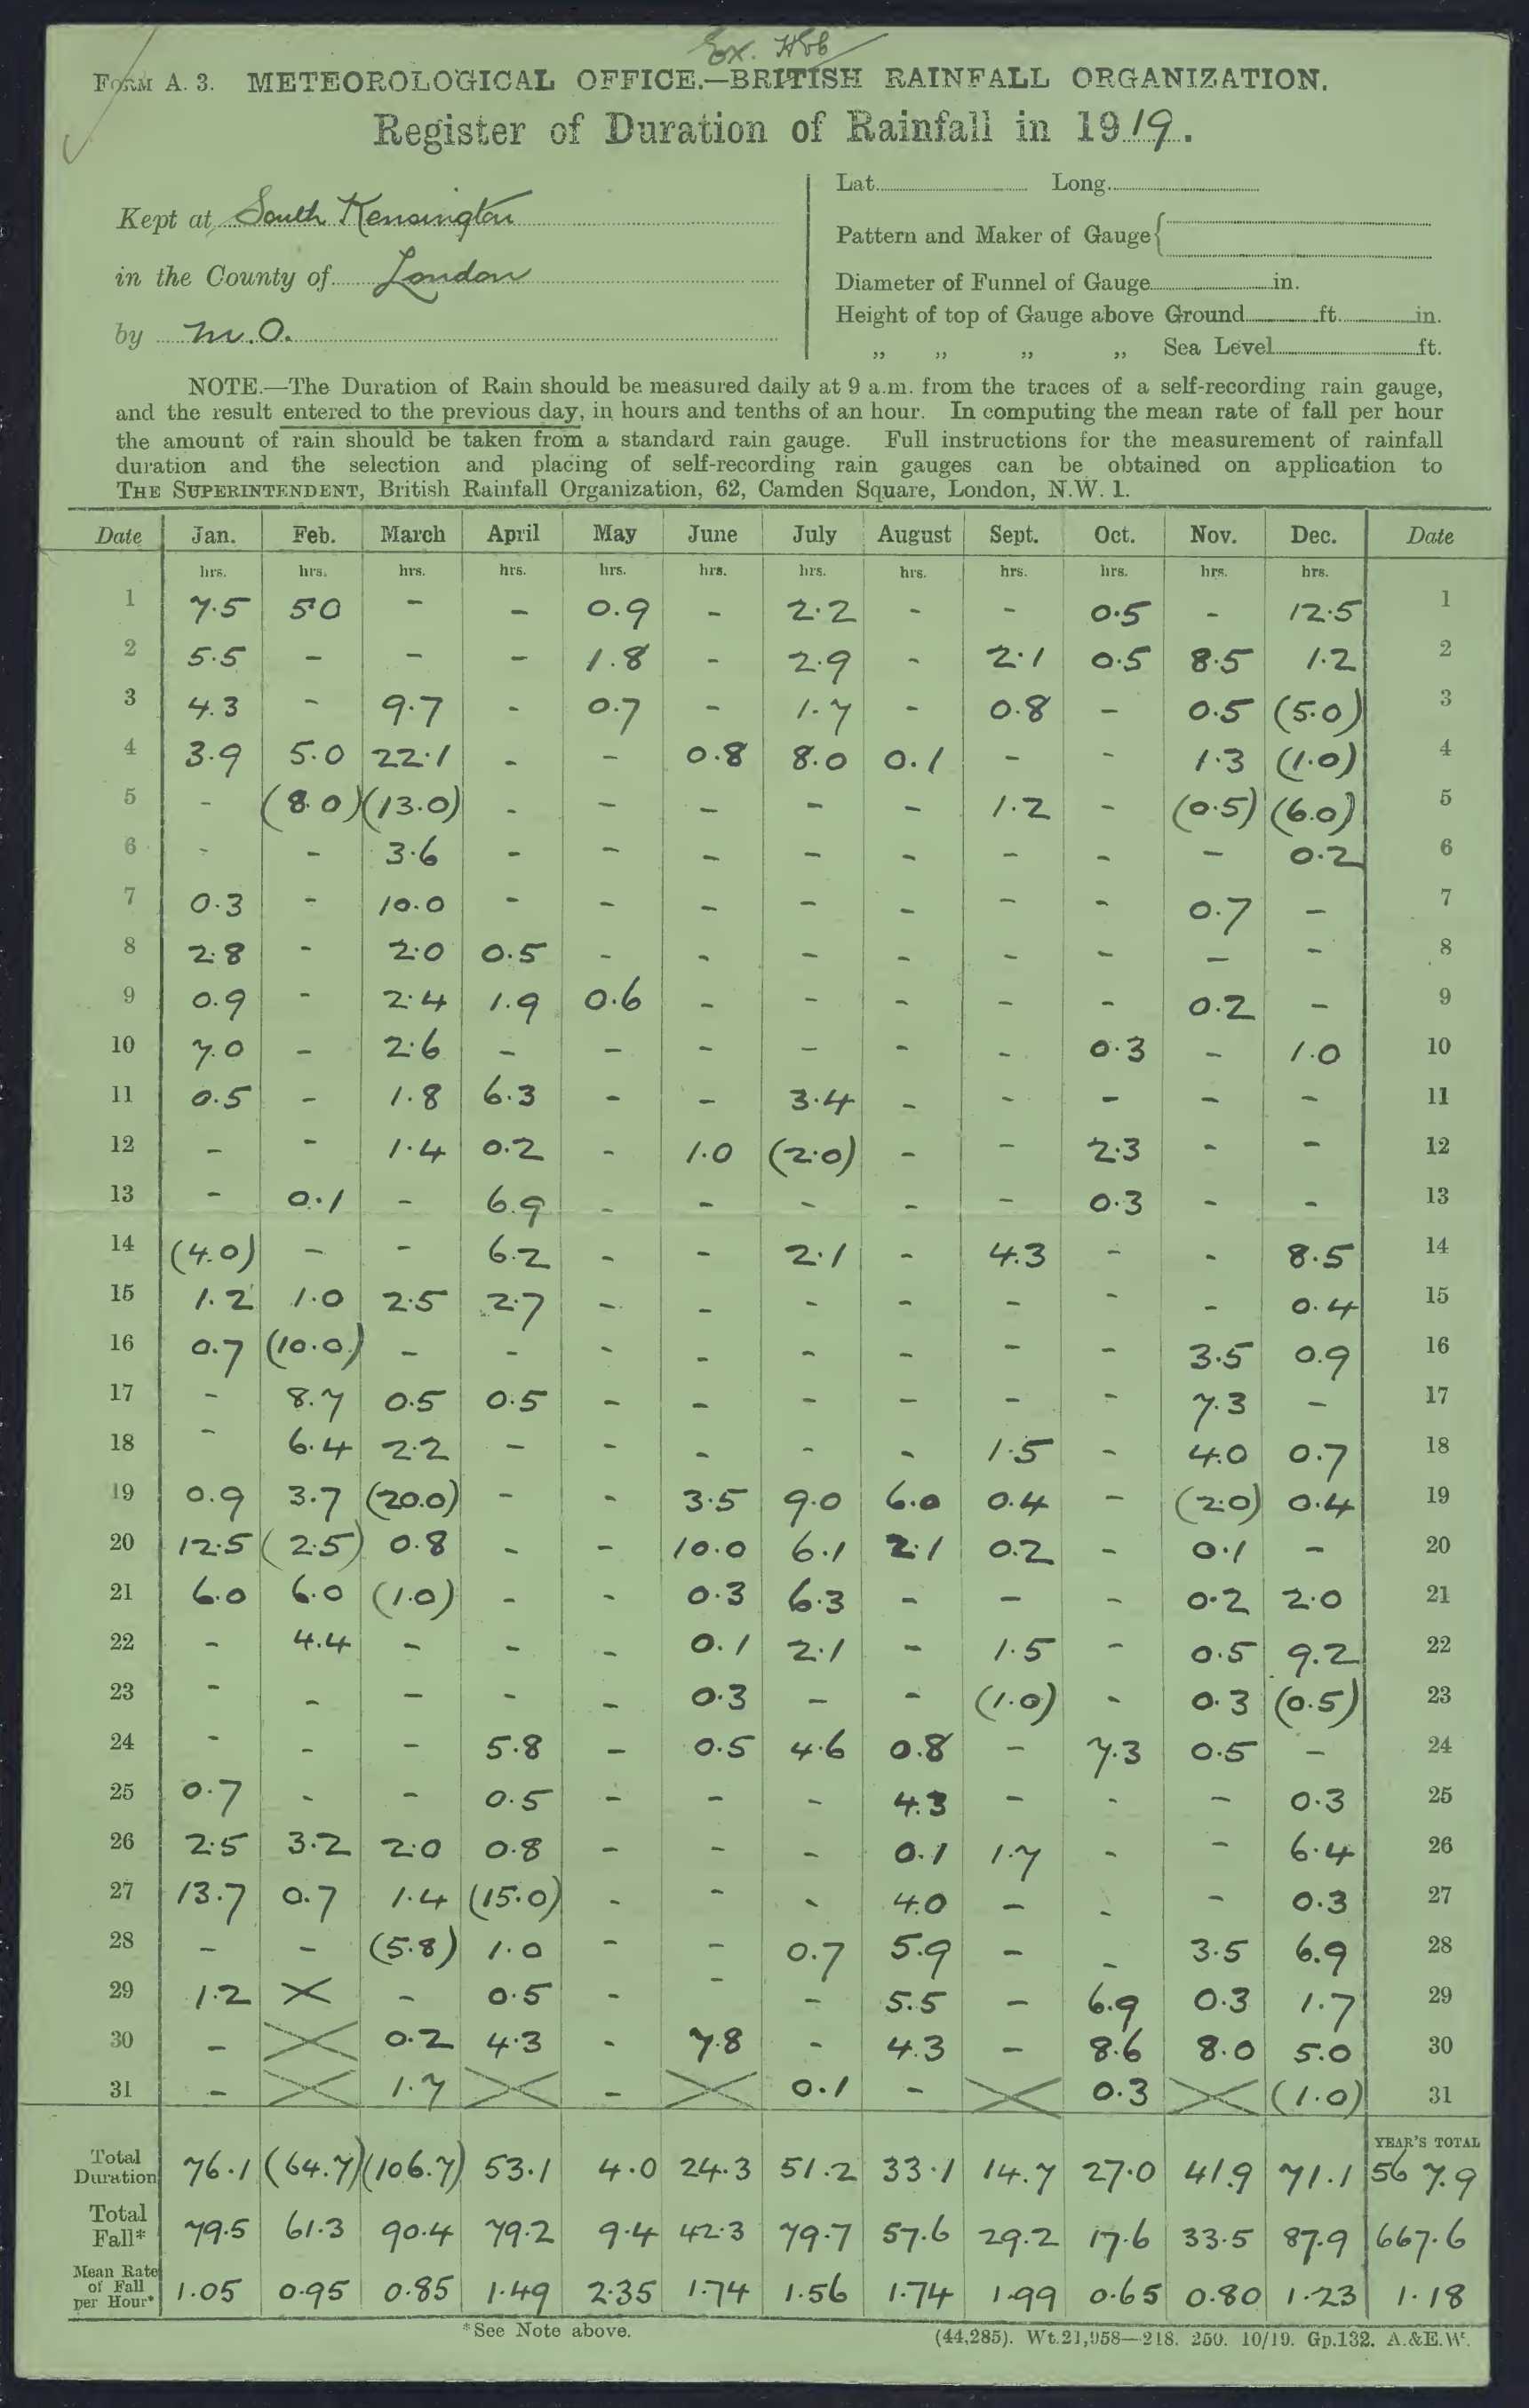 Ex. Wbb
FORM A. 3. METEOROLOGICAL OFFICE.—BRITISH RAINFALL ORGANIZATION.
Register of Duration of Rainfall in 1919.
Kept at South Kensington
in the County of London
by M.O.
Lat. Long.
Pattern and Maker of Gauge
Diameter of Funnel of Gauge in.
Height of top of Gauge above Ground ft. in.
„ „ „ „ Sea Level ft.
NOTE.—The Duration of Rain should be measured daily at 9 a.m. from the traces of a self-recording rain gauge,
and the result entered to the previous day, in hours and tenths of an hour. In computing the mean rate of fall per hour
the amount of rain should be taken from a standard rain gauge. Full instructions for the measurement of rainfall
duration and the selection and placing of self-recording rain gauges can be obtained on application to
THE SUPERINTENDENT, British Rainfall Organization, 62, Camden Square, London, N.W. 1.
Date Jan. Feb. March April May June July August Sept. Oct. Nov. Dec. Date
hrs. hrs. hrs. hrs. hrs. hrs. hrs. hrs. hrs. hrs. hrs. hrs.
1 7.5 5.0 - - 0.9 - 2.2 - - 0.5 - 12.5 1
2 5.5 - - - 1.8 - 2.9 - 2.1 0.5 8.5 1.2 2
3 4.3 - 9.7 - 0.7 - 1.7 - 0.8 - 0.5 (5.0) 3
4 3.9 5.0 22.1 - - 0.8 8.0 0.1 - - 1.3 (1.0) 4
5 - (8.0) (13.0) - - - - - 1.2 - (0.5) (6.0) 5
6 - - 3.6 - - - - - - - - 0.2 6
7 0.3 - 10.0 - - - - - - - 0.7 - 7
8 2.8 - 2.0 0.5 - - - - - - - - 8
9 0.9 - 2.4 1.9 0.6 - - - - - 0.2 - 9
10 7.0 - 2.6 - - - - - - 0.3 - 1.0 10
11 0.5 - 1.8 6.3 - - 3.4 - - - - - 11
12 - - 1.4 0.2 - 1.0 (2.0) - - 2.3 - - 12
13 - 0.1 - 6.9 - - - - - 0.3 - - 13
14 (4.0) - - 6.2 - - 2.1 - 4.3 - - 8.5 14
15 1.2 1.0 2.5 2.7 - - - - - - - 0.4 15
16 0.7 (10.0) - - - - - - - - 3.5 0.9 16
17 - 8.7 0.5 0.5 - - - - - - 7.3 - 17
18 - 6.4 2.2 - - - - - 1.5 - 4.0 0.7 18
19 0.9 3.7 (20.0) - - 3.5 9.0 6.0 0.4 - (2.0) 0.4 19
20 12.5 (2.5) 0.8 - - 10.0 6.1 2.1 0.2 - 0.1 - 20
21 6.0 6.0 (1.0) - - 0.3 6.3 - - - 0.2 2.0 21
22 - 4.4 - - - 0.1 2.1 - 1.5 - 0.5 9.2 22
23 - - - - - 0.3 - - (1.0) - 0.3 (0.5) 23
24 - - - 5.8 - 0.5 4.6 0.8 - 7.3 0.5 - 24
25 0.7 - - 0.5 - - - 4.3 - - - 0.3 25
26 2.5 3.2 2.0 0.8 - - - 0.1 1.7 - - 6.4 26
27 13.7 0.7 1.4 (15.0) - - - 4.0 - - - 0.3 27
28 - - (5.8) 1.0 - - 0.7 5.9 - - 3.5 6.9 28
29 1.2 × - 0.5 - - - 5.5 - 6.9 0.3 1.7 29
30 - × 0.2 4.3 - 7.8 - 4.3 - 8.6 8.0 5.0 30
31 - × 1.7 × - × 0.1 - × 0.3 × (1.0) 31
YEAR'S TOTAL
Total Duration 76.1 (64.7) (106.7) 53.1 4.0 24.3 51.2 33.1 14.7 27.0 41.9 71.1 567.9
Total Fall* 79.5 61.3 90.4 79.2 9.4 42.3 79.7 57.6 29.2 17.6 33.5 87.9 667.6
Mean Rate of Fall per Hour* 1.05 0.95 0.85 1.49 2.35 1.74 1.56 1.74 1.99 0.65 0.80 1.23 1.18
*See Note above.
(44,285). Wt.21,958—218. 250. 10/19. Gp.132. A.&E.W.